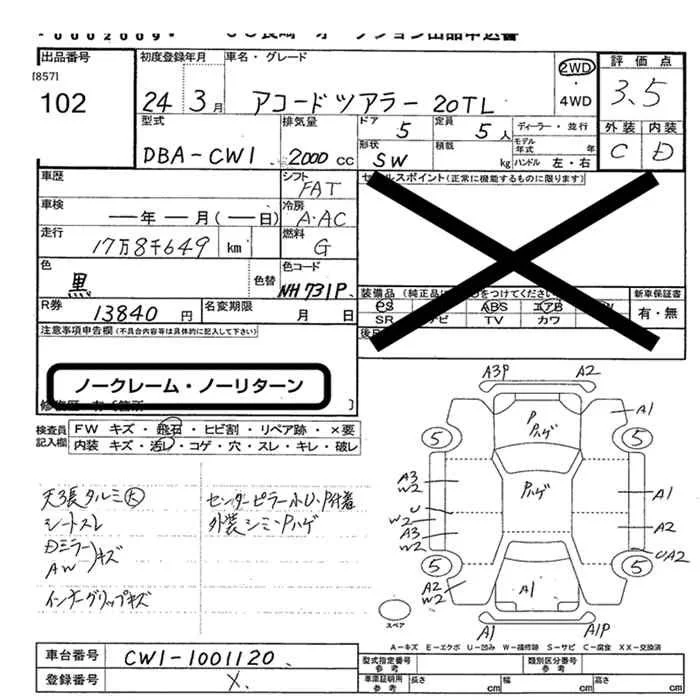 出品番号
[857]
102
初度登録年月
24年 3月
車名・グレード
アコードツアラー 20TL
2WD
・
4WD
評価点
3.5
外装 内装
C D
型式
DBA-CW1
排気量
2000 CC
ドア
5
定員
5人
ディーラー・並行
形状
SW
積載
kg
モデル年式
年
ハンドル 左・右
車歴
シフト
FAT
車検
年 月( 日)
冷房
A・AC
走行
17万8千649 km
燃料
G
色
黒
色替
色コード
NH731P
R券
13840 円
名変期限
月 日
セールスポイント(正常に機能するものに限ります)
装備品
新車保証書
有・無
PS ABS エアB
SR TV カワ
注意事項申告欄(不具合内容等は具体的に記入して下さい)
ノークレーム・ノーリターン
検査員記入欄
FW キズ・飛石・ヒビ割・リペア跡・×要
内装 キズ・汚レ・コゲ・穴・スレ・キレ・破レ
天張タルミ大
シートスレ
Dミラー
AW キズ
インナーグリップキズ
センターピラー小U・P付着
外装シミ・Pハゲ
A3P A2
P
Pハゲ
A1
5 5
Pハゲ
A3
W2
A1
U
W2
A2
A3
W2
UA2
5 5
A2
W2
A1
スペア
A1 A1P
A-キズ E-エクボ U-凹み W-補修跡 S-サビ C-腐食 XX-交換済
車台番号
CW1-1001120
登録番号
X
型式指定番号
参考
類別区分番号
参考
車庫証明用
参考
長さ cm
幅 cm
高さ cm